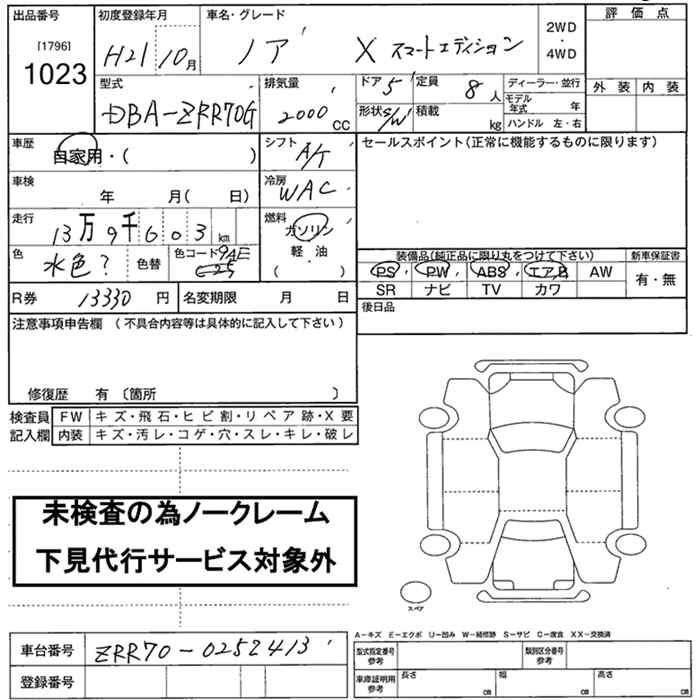 出品番号 初度登録年月 車名・グレード 2WD・4WD 評価点
[1796]
1023 H21 10月 ノア X スマートエディション
外装 内装
型式 排気量 ドア 5 定員 8人 ディーラー・並行
DBA-ZRR70G 2000CC 形状 S/W 積載 kg モデル年式 年
ハンドル 左・右
車歴 自家用・( ) シフト A/T セールスポイント(正常に機能するものに限ります)
車検 年 月( 日) 冷房 WAC
走行 13万9千603km 燃料 ガソリン 軽油 ( )
色 水色? 色替 色コード
R券 13330円 名変期限 月 日
装備品(純正品に限り丸をつけて下さい) 新車保証書
PS PW ABS エアB AW 有・無
SR ナビ TV カワ
後日品
注意事項申告欄(不具合内容等は具体的に記入して下さい)
修復歴 有〔箇所 〕
検査員 FW キズ・飛石・ヒビ割・リペア跡・X要
記入欄 内装 キズ・汚レ・コゲ・穴・スレ・キレ・破レ
未検査の為ノークレーム
下見代行サービス対象外
スペア
A-キズ E-エクボ U-凹み W-補修跡 S-サビ C-腐食 XX-交換済
車台番号 ZRR70-0252413
登録番号
型式指定番号 参考 類別区分番号 参考
車庫証明用 参考 長さ cm 幅 cm 高さ cm